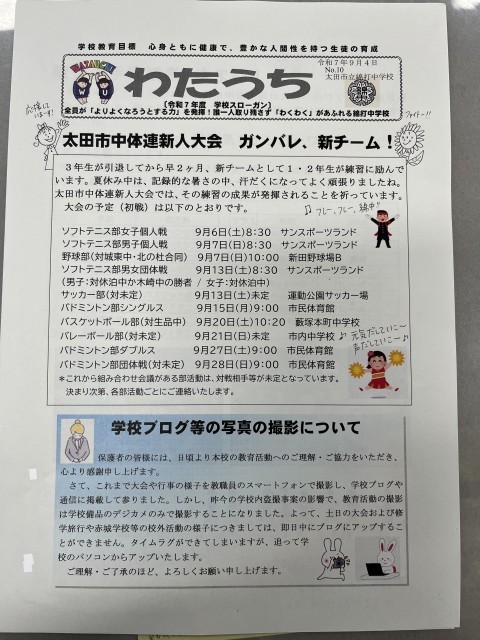 学校教育目標　心身ともに健康で、豊かな人間性を持つ生徒の育成
WATAUCHI
わたうち
令和７年９月４日
No.10
太田市立綿打中学校
〔令和７年度　学校スローガン〕
全員が「よりよくなろうとする力」を発揮！誰一人取り残さず「わくわく」があふれる綿打中学校
応援に
いはーす！
ファイトー!!
太田市中体連新人大会　ガンバレ、新チーム！
３年生が引退してから早２ヶ月、新チームとして１・２年生が練習に励んで
います。夏休み中は、記録的な暑さの中、汗だくになってよく頑張りましたね。
太田市中体連新人大会では、その練習の成果が発揮されることを祈っています。
大会の予定（初戦）は以下のとおりです。
フレー、フレー、綿中!!
ソフトテニス部女子個人戦　9月6日(土)8:30　サンスポーツランド
ソフトテニス部男子個人戦　9月7日(日)8:30　サンスポーツランド
野球部(対城東中・北の杜合同)　9月7日(日)10:00　新田野球場B
ソフトテニス部男女団体戦　9月13日(土)8:30　サンスポーツランド
(男子：対休泊中か木崎中の勝者 / 女子：対休泊中)
サッカー部(対未定)　9月13日(土)未定　運動公園サッカー場
バドミントン部シングルス　9月15日(月)9:00　市民体育館
バスケットボール部(対生品中)　9月20日(土)10:20　藪塚本町中学校
バレーボール部(対未定)　9月21日(日)未定　市内中学校
バドミントン部ダブルス　9月27日(土)9:00　市民体育館
バドミントン部団体戦(対未定)　9月28日(日)9:00　市民体育館
♪ 元気だしていこ～
声だしていこ～♪
＊これから組み合わせ会議がある部活動は、対戦相手等が未定となっています。
決まり次第、各部活動ごとにご連絡いたします。
学校ブログ等の写真の撮影について
保護者の皆様には、日頃より本校の教育活動へのご理解・ご協力をいただき、
心より感謝申し上げます。
さて、これまで大会や行事の様子を教職員のスマートフォンで撮影し、学校ブログや
通信に掲載して参りました。しかし、昨今の学校内盗撮事案の影響で、教育活動の撮影
は学校備品のデジカメのみで撮影することになりました。よって、土日の大会および修
学旅行や赤城学校等の校外活動の様子につきましては、即日中にブログにアップするこ
とができません。タイムラグができてしまいますが、追って学
校のパソコンからアップいたします。
ご理解・ご了承のほど、よろしくお願い申し上げます。